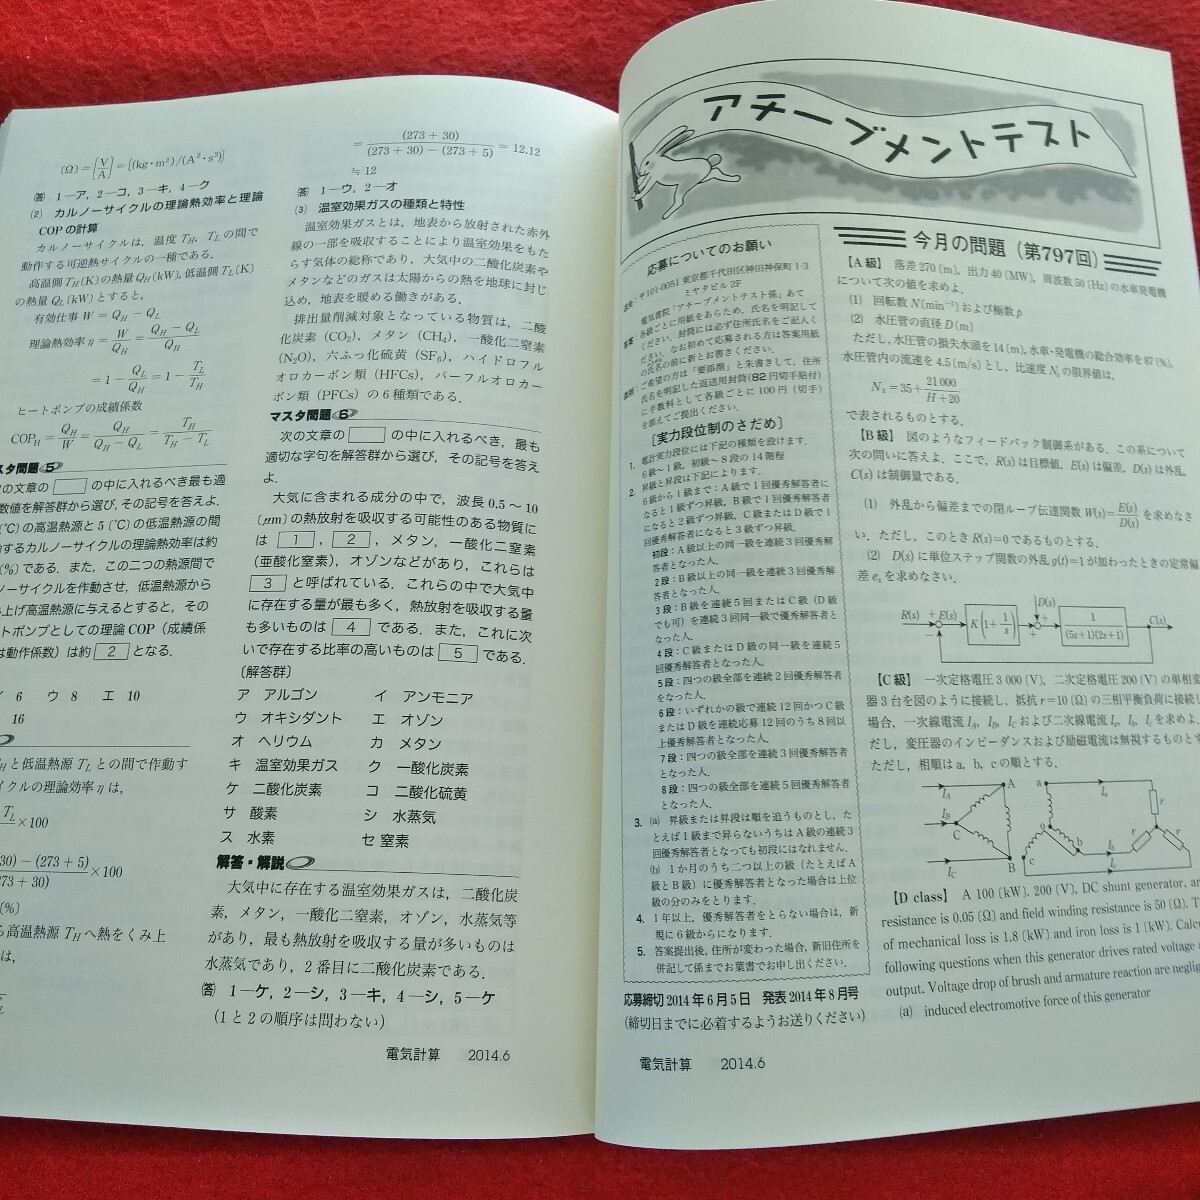 (Ω)＝[V/A]＝[(kg・m²)/(A²・s³)]
(答) 1―ア，2―コ，3―キ，4―ク
(2) カルノーサイクルの理論熱効率と理論
COPの計算
カルノーサイクルは，温度 T_H，T_L の間で
動作する可逆熱サイクルの一種である．
高温側 T_H(K)の熱量 Q_H(kW)，低温側 T_L(K)
の熱量 Q_L(kW)とすると，
有効仕事 W＝Q_H－Q_L
理論熱効率 η＝W/Q_H＝(Q_H－Q_L)/Q_H
＝1－Q_L/Q_H＝1－T_L/T_H
ヒートポンプの成績係数
COP_H＝Q_H/W＝Q_H/(Q_H－Q_L)＝T_H/(T_H－T_L)
スタ問題 5
の文章の の中に入れるべき最も適
数値を解答群から選び，その記号を答えよ．
(℃)の高温熱源と5(℃)の低温熱源の間
するカルノーサイクルの理論熱効率は約
(%)である．また，この二つの熱源間で
ノーサイクルを動作させ，低温熱源から
上げ高温熱源に与えるとすると，その
トポンプとしての理論COP（成績係
は動作係数）は約 2 となる．
イ 6 ウ 8 エ 10
16
Hと低温熱源 T_L との間で作動す
イクルの理論効率 η は，
T_L ×100
30)－(273＋5) / 273＋30) ×100
(%)
ら高温熱源 T_H へ熱をくみ上
は，
＝(273＋30)/((273＋30)－(273＋5))＝12.12
≒12
(答) 1―ウ，2―オ
(3) 温室効果ガスの種類と特性
温室効果ガスとは，地表から放射された赤外
線の一部を吸収することにより温室効果をもた
らす気体の総称であり，大気中の二酸化炭素や
メタンなどのガスは太陽からの熱を地球に封じ
込め，地表を暖める働きがある．
排出量削減対象となっている物質は，二酸
化炭素（CO₂），メタン（CH₄），一酸化二窒素
（N₂O），六ふっ化硫黄（SF₆），ハイドロフル
オロカーボン類（HFCs），パーフルオロカー
ボン類（PFCs）の6種類である．
マスタ問題 6
次の文章の の中に入れるべき，最も
適切な字句を解答群から選び，その記号を答え
よ．
大気に含まれる成分の中で，波長0.5～10
〔μm〕の熱放射を吸収する可能性のある物質に
は 1 ， 2 ，メタン，一酸化二窒素
（亜酸化窒素），オゾンなどがあり，これらは
3 と呼ばれている．これらの中で大気中
に存在する量が最も多く，熱放射を吸収する量
も多いものは 4 である．また，これに次
いで存在する比率の高いものは 5 である．
〔解答群〕
ア アルゴン イ アンモニア
ウ オキシダント エ オゾン
オ ヘリウム カ メタン
キ 温室効果ガス ク 一酸化炭素
ケ 二酸化炭素 コ 二酸化硫黄
サ 酸素 シ 水蒸気
ス 水素 セ 窒素
解答・解説
大気中に存在する温室効果ガスは，二酸化炭
素，メタン，一酸化二窒素，オゾン，水蒸気等
があり，最も熱放射を吸収する量が多いものは
水蒸気であり，2番目に二酸化炭素である．
(答) 1―ケ，2―シ，3―キ，4―シ，5―ケ
（1と2の順序は問わない）
電気計算 2014.6
アチーブメントテスト
応募についてのお願い
〒101-0051 東京都千代田区神田神保町1-3
ミヤタビル2F
電気書院「アチーブメントテスト係」あて
各級ごとに用紙をあらため，氏名を明記して
ください．封筒には必ず住所氏名をご記入く
ださい．なお初めて応募される方は答案用紙
の氏名の前に新とお書きください．
ご希望の方は「要添削」と朱書きして，住所
氏名を明記した返送用封筒（82円切手貼付）
に手数料として各級ごとに100円（切手）
を添えてご提出ください．
［実力段位制のさだめ］
1. 電計実力段位には下記の種類を設けます．
6級～1級，初級～8段の14階程
2. 昇級と昇段は下記によります．
6級から1級まで：A級で1回優秀解答者に
なると1級ずつ昇級，B級で1回優秀解答者
になると2級ずつ昇級，C級またはD級で1
回優秀解答者になると3級ずつ昇級．
初段：A級以上の同一級を連続3回優秀解
答者となった人．
2段：B級以上の同一級を連続3回優秀解
答者となった人．
3段：B級を連続5回またはC級（D級
でも可）を連続3回同一級で優秀解答者と
なった人．
4段：C級またはD級の同一級を連続5
回優秀解答者となった人．
5段：四つの級全部を連続2回優秀解答者
をなった人．
6段：いずれかの級で連続12回かつC級
またはD級を連続応募12回のうち8回以
上優秀解答者となった人．
7段：四つの級全部を連続3回優秀解答者
となった人．
8段：四つの級全部を連続5回優秀解答者
となった人．
3. (a) 昇級または昇段は順を追うものとし，た
とえば1級まで昇らないうちはA級の連続3
回優秀解答者となっても初段にはなれません．
(b) 1か月のうち二つ以上の級（たとえばA
級とB級）に優秀解答者となった場合は上位
級の分のみをとります．
4. 1年以上，優秀解答者をとらない場合は，新
規に6級からになります．
5. 答案提出後，住所が変わった場合，新旧住所を
併記して係までお葉書でお申し出ください．
応募締切 2014年6月5日 発表 2014年8月号
（締切日までに必着するようお送りください）
電気計算 2014.6
今月の問題（第797回）
【A級】 落差270〔m〕，出力40〔MW〕，周波数50〔Hz〕の水車発電機
について次の値を求めよ．
(1) 回転数N〔min⁻¹〕および極数p
(2) 水圧管の直径D〔m〕
ただし，水圧管の損失水頭を14〔m〕，水車・発電機の総合効率を87〔%〕，
水圧管内の流速を4.5〔m/s〕とし，比速度Nₛの限界値は，
Nₛ＝35＋21000/(H＋20)
で表されるものとする．
【B級】 図のようなフィードバック制御系がある．この系について
次の問いに答えよ．ここで，R(s)は目標値，E(s)は偏差，D(s)は外乱，
C(s)は制御量である．
(1) 外乱から偏差までの閉ループ伝達関数 W(s)＝E(s)/D(s) を求めなさ
い．ただし，このとき R(s)＝0であるものとする．
(2) D(s)に単位ステップ関数の外乱 g(t)＝1が加わったときの定常偏
差 eₛ を求めなさい．
R(s) + E(s) K(1＋1/s) D(s) 1/((5s+1)(2s+1)) C(s)
− + +
【C級】 一次定格電圧3 000〔V〕，二次定格電圧200〔V〕の単相変
器3台を図のように接続し，抵抗 r＝10〔Ω〕の三相平衡負荷に接続し
場合，一次線電流 I_A，I_B，I_C および二次線電流 I_a，I_b，I_c を求めよ．
だし，変圧器のインピーダンスおよび励磁電流は無視するものとす
ただし，相順は a，b，c の順とする．
I_A A a I_a r
I_B C o b I_b r r
I_C B c I_c
【D class】 A 100〔kW〕. 200〔V〕, DC shunt generator, ar
resistance is 0.05〔Ω〕and field winding resistance is 50〔Ω〕. T
of mechanical loss is 1.8〔kW〕and iron loss is 1〔kW〕. Calcu
following questions when this generator drives rated voltage a
output. Voltage drop of brush and armature reaction are neglig
(a) induced electromotive force of this generator